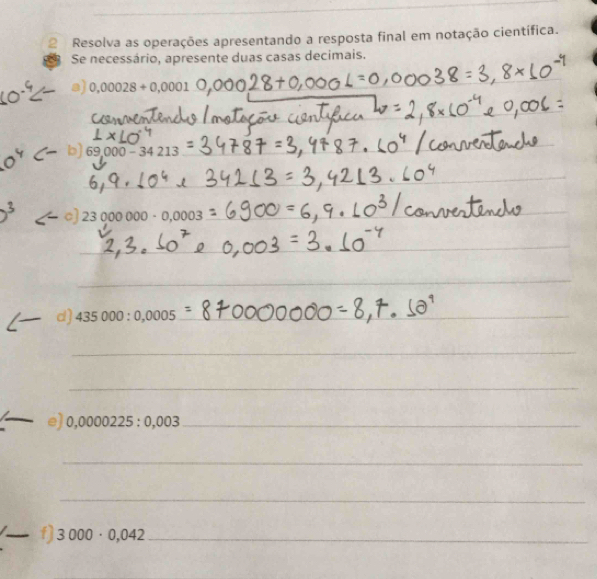 2 Resolva as operações apresentando a resposta final em notação científica.
Se necessário, apresente duas casas decimais.
10⁻⁴ ← a) 0,00028 + 0,0001 0,00028+0,0001=0,00038=3,8×10⁻⁴
conventendo/notação científica = 2,8×10⁻⁴ e 0,001 =
1×10⁻⁴
10⁴ ← b) 69 000 – 34 213 = 34787 = 3,4787.10⁴ / conventendo
6,9.10⁴ e 34213 = 3,4213.10⁴
3 ← c) 23 000 000 · 0,0003 = 6900 = 6,9.10³ / conventendo
2,3.10⁷ e 0,003 = 3.10⁻⁴
← d) 435 000 : 0,0005 = 870000000 = 8,7.10⁹
← e) 0,0000225 : 0,003
← f) 3 000 · 0,042